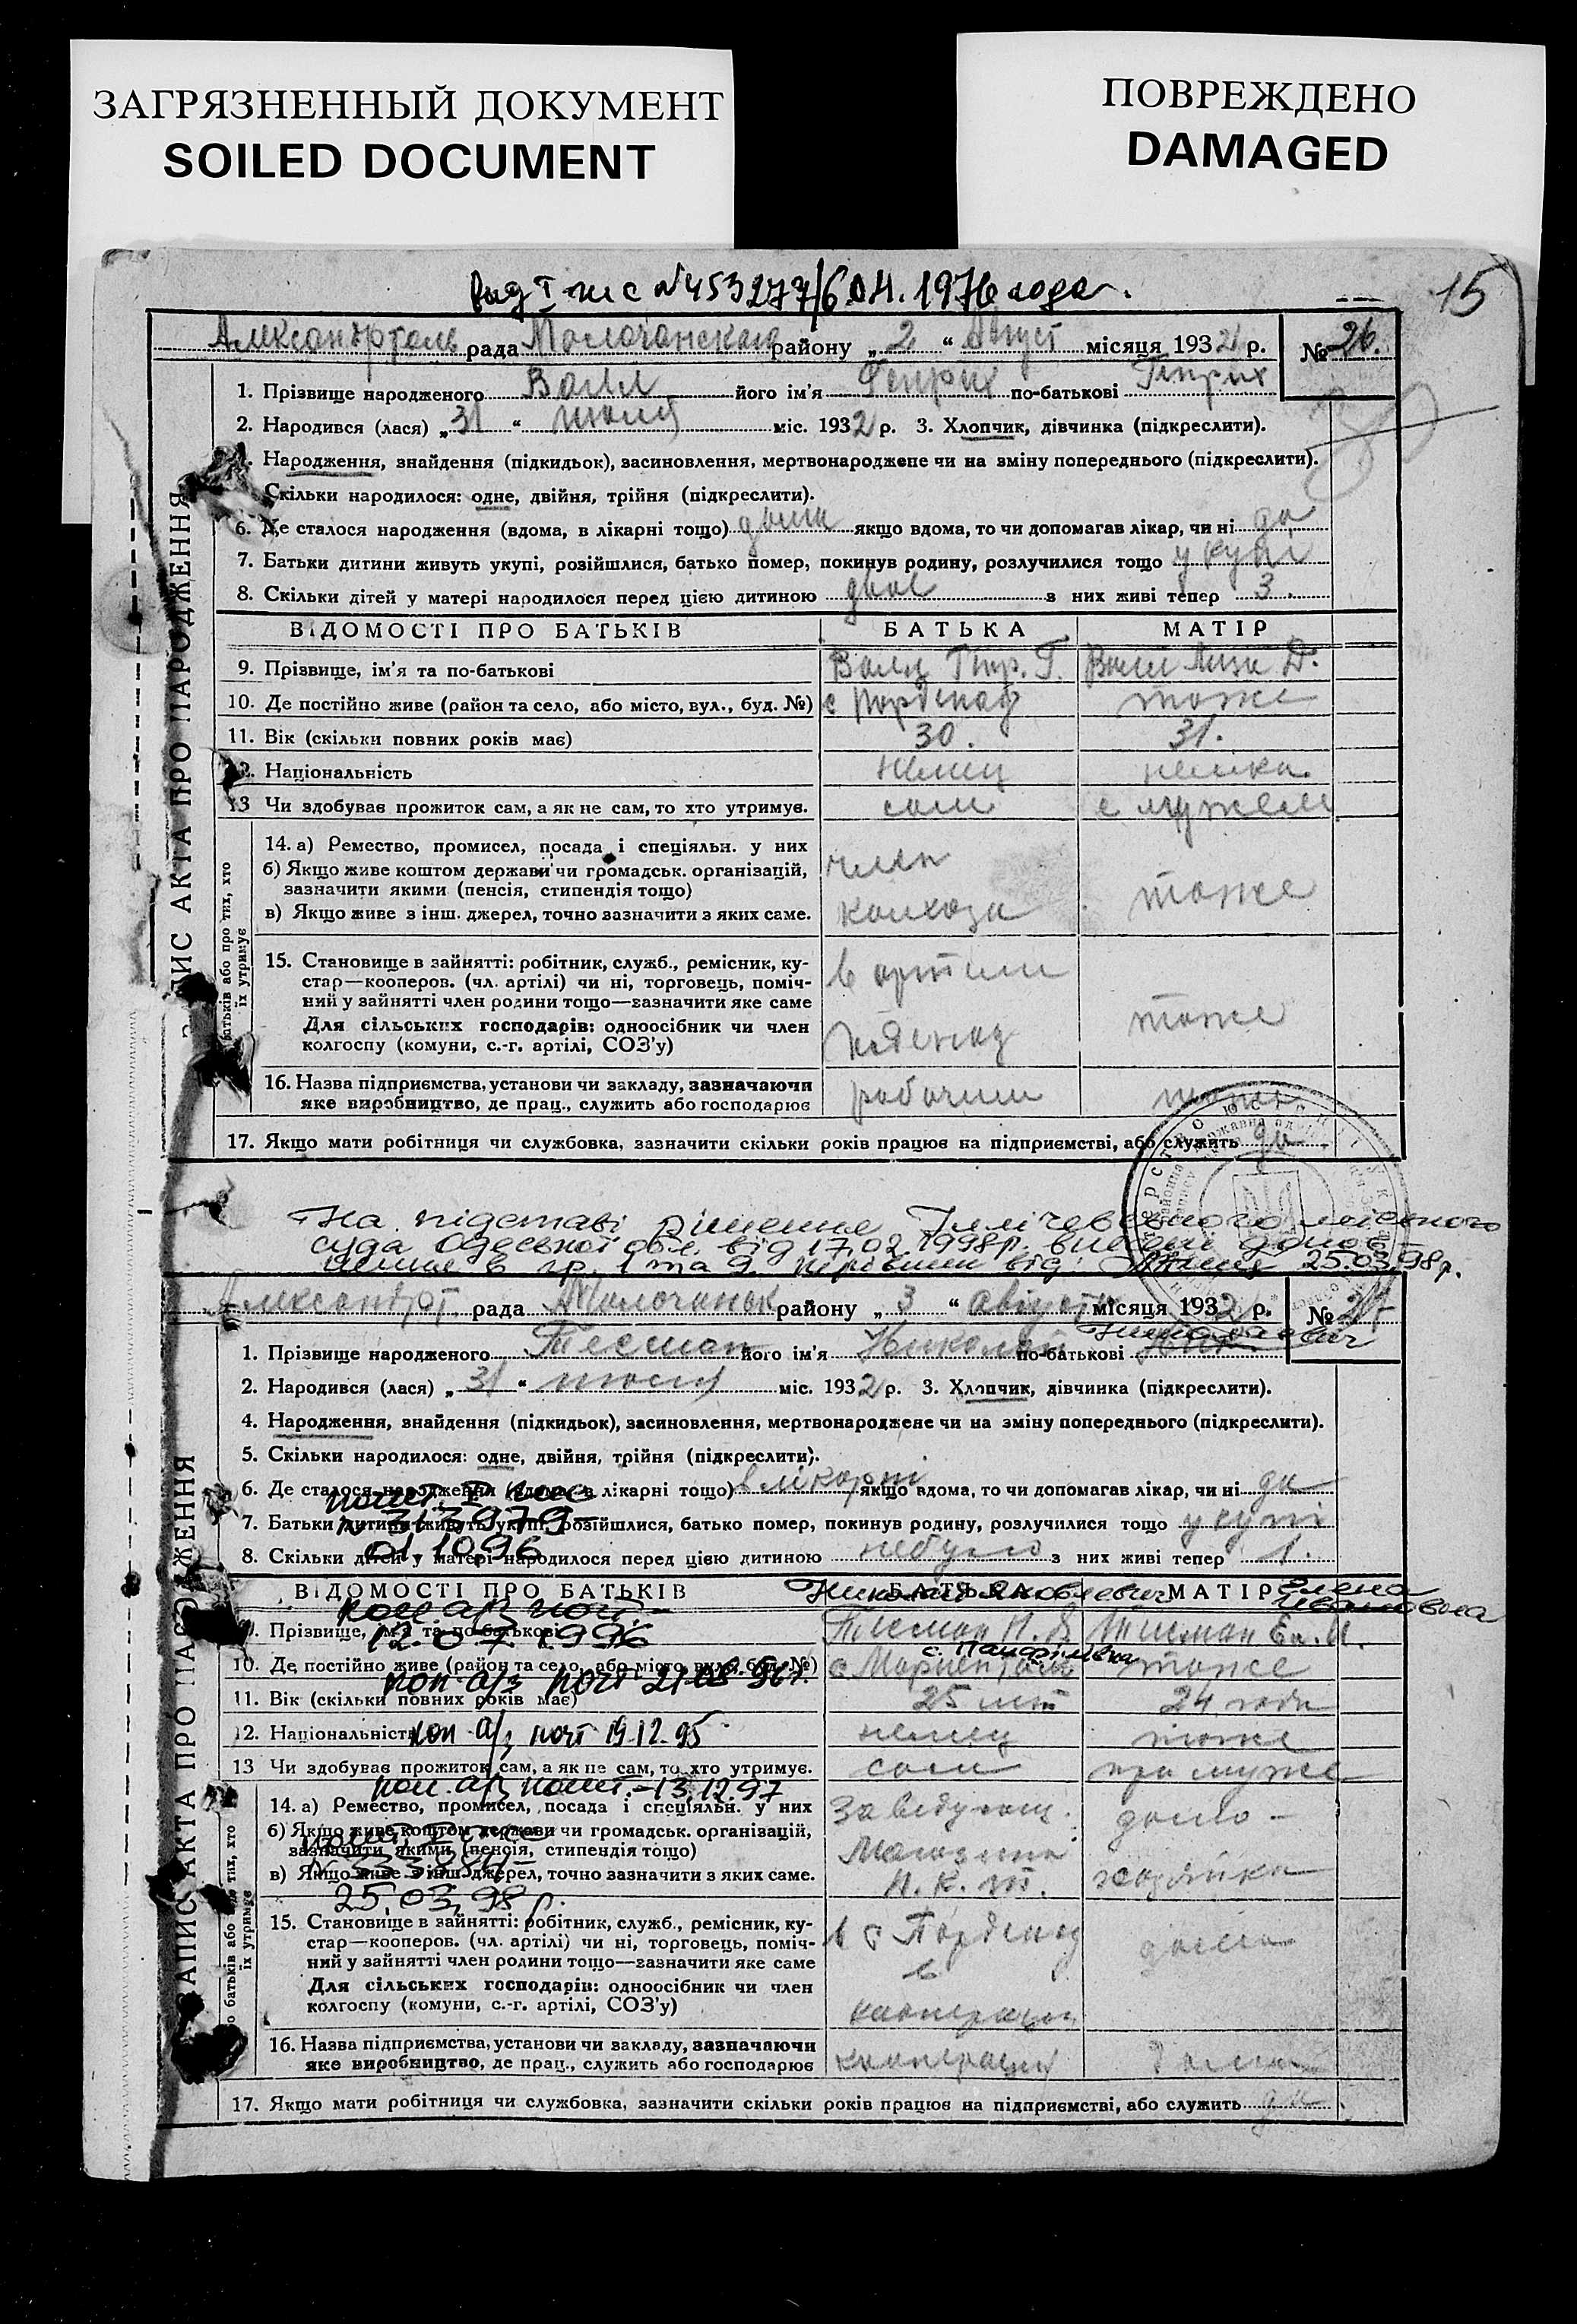 ЗАГРЯЗНЕННЫЙ ДОКУМЕНТ
SOILED DOCUMENT
ПОВРЕЖДЕНО
DAMAGED
15
№ 453277/6 1976 года.
рада Молочанского району „ 2 “ Август місяця 1932 р. № 26.
1. Прізвище народженого Валл його ім'я Генрих по-батькові Генрих
2. Народився (лася) „ 31 “ июля міс. 1932 р. 3. Хлопчик, дівчинка (підкреслити).
Народження, знайдення (підкидьок), засиновлення, мертвонароджене чи на зміну попереднього (підкреслити).
Скільки народилося: одне, двійня, трійня (підкреслити).
6. Де сталося народження (вдома, в лікарні тощо) дома якщо вдома, то чи допомагав лікар, чи ні да
7. Батьки дитини живуть укупі, розійшлися, батько помер, покинув родину, розлучилися тощо укупі
8. Скільки дітей у матері народилося перед цією дитиною двое з них живі тепер 3.
ЗАПИС АКТА ПРО НАРОДЖЕННЯ
ВІДОМОСТІ ПРО БАТЬКІВ БАТЬКА МАТІР
9. Прізвище, ім'я та по-батькові Валл Генр. Г. Валл Лиза Д.
10. Де постійно живе (район та село, або місто, вул., буд. №) тоже
11. Вік (скільки повних років має) 30. 31.
12. Національність немец немка.
13 Чи здобуває прожиток сам, а як не сам, то хто утримує. сам с мужем
батьків або про тих, хто їх утримує
14. а) Ремество, промисел, посада і спеціяльн. у них
б) Якщо живе коштом держави чи громадськ. організацій,
зазначити якими (пенсія, стипендія тощо)
в) Якщо живе з інш. джерел, точно зазначити з яких саме.
член
колхоза
тоже
15. Становище в зайнятті: робітник, служб., ремісник, ку-
стар—кооперов. (чл. артілі) чи ні, торговець, поміч-
ний у зайнятті член родини тощо—зазначити яке саме
Для сільських господарів: одноосібник чи член
колгоспу (комуни, с.-г. артілі, СОЗ'у)
в артели
тоже
16. Назва підприємства, установи чи закладу, зазначаючи
яке виробництво, де прац., служить або господарює
рабочим тоже
17. Якщо мати робітниця чи службовка, зазначити скільки років працює на підприємстві, або служить да
На підставі рішення Іллічевського міського
суда Одеської обл. від 17.02.1998р. внесені допов-
нення в гр. 1 та 9. 25.03.98р.
рада району „ 3 “ августа місяця 1932 р. № 27
Николаевич
1. Прізвище народженого Тесман його ім'я Николай по-батькові
2. Народився (лася) „ 31 “ июля міс. 1932 р. 3. Хлопчик, дівчинка (підкреслити).
4. Народження, знайдення (підкидьок), засиновлення, мертвонароджене чи на зміну попереднього (підкреслити).
5. Скільки народилося: одне, двійня, трійня (підкреслити).
6. Де сталося народження (вдома, в лікарні тощо) в лікарні якщо вдома, то чи допомагав лікар, чи ні да
7. Батьки дитини живуть укупі, розійшлися, батько помер, покинув родину, розлучилися тощо укупі
№ 313979
8. Скільки дітей у матері народилося перед цією дитиною небуло з них живі тепер 1.
01.10.96
ЗАПИС АКТА ПРО НАРОДЖЕННЯ
ВІДОМОСТІ ПРО БАТЬКІВ БАТЬКА МАТІР
Николай Яковлевич Елена Ивановна
9. Прізвище, ім'я та по-батькові Тесман Н. Я. Тесман Ел. И.
12.07.1996
10. Де постійно живе (район та село, або місто, вул., буд. №) с. Мариенталь тоже
с. Панфілівка
коп а/з почт 21.08.96г.
11. Вік (скільки повних років має) 25 лет 24 года
12. Національність немец тоже
коп а/з почт 19.12.95
13 Чи здобуває прожиток сам, а як не сам, то хто утримує. сам при муже
коп. а/з почт.-13.12.97
14. а) Ремество, промисел, посада і спеціяльн. у них
б) Якщо живе коштом держави чи громадськ. організацій,
зазначити якими (пенсія, стипендія тощо)
в) Якщо живе з інш. джерел, точно зазначити з яких саме.
25.03.98р.
Заведующ.
Магазина
домо-
хозяйка
15. Становище в зайнятті: робітник, служб., ремісник, ку-
стар—кооперов. (чл. артілі) чи ні, торговець, поміч-
ний у зайнятті член родини тощо—зазначити яке саме
Для сільських господарів: одноосібник чи член
колгоспу (комуни, с.-г. артілі, СОЗ'у)
в
кооперации
дома
16. Назва підприємства, установи чи закладу, зазначаючи
яке виробництво, де прац., служить або господарює
кооперация дома
17. Якщо мати робітниця чи службовка, зазначити скільки років працює на підприємстві, або служить да